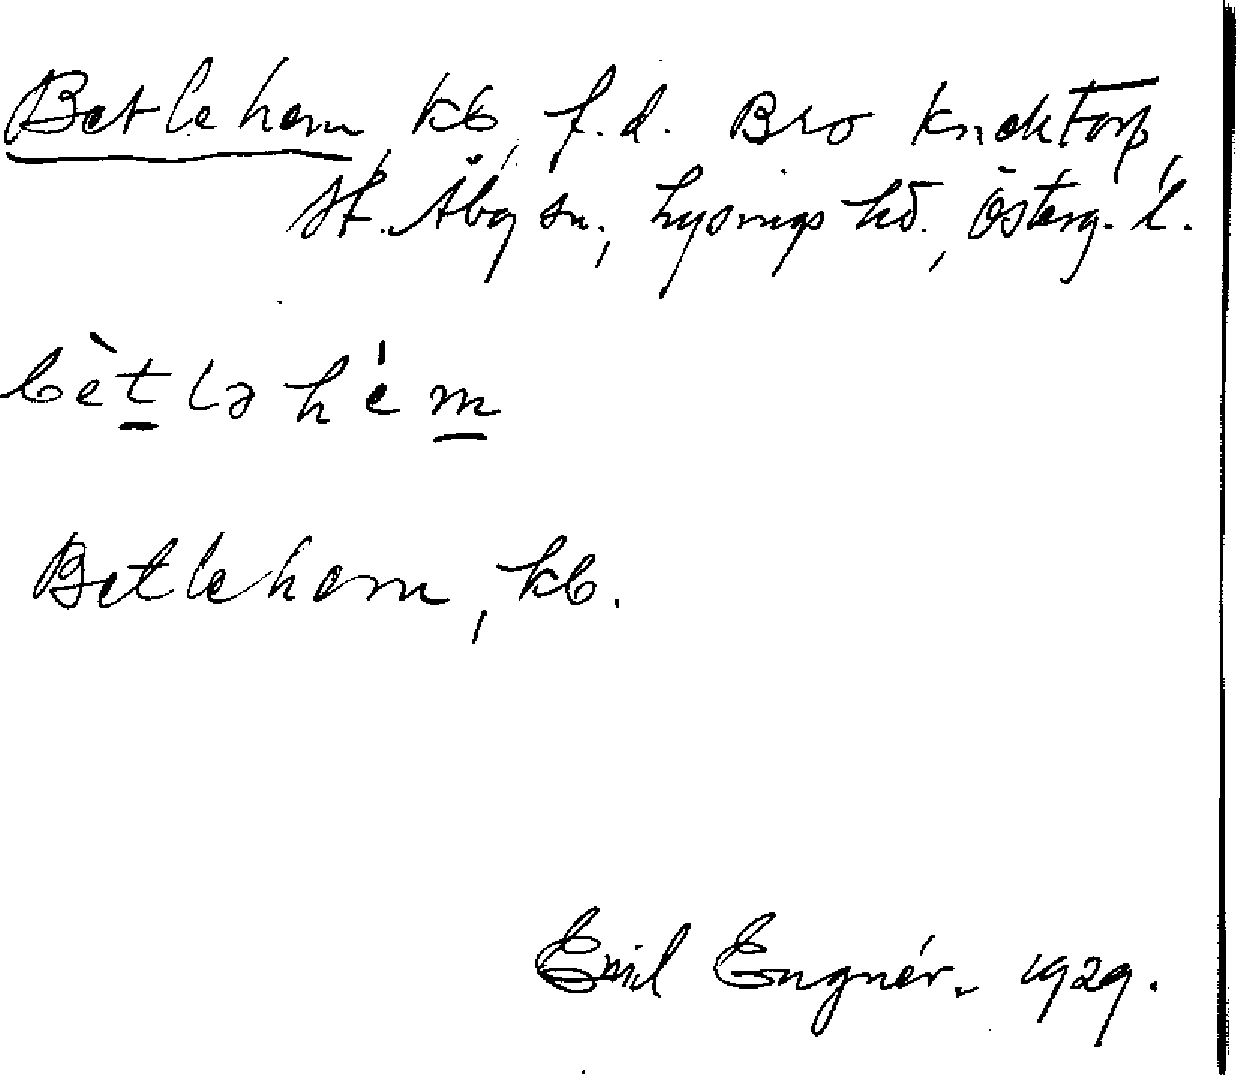 Betlehem, kb, f.d. Bro Knektorp,
St. Åby sn., Lysings hd., Österg. l.
bètləhém
Betlehem, kb.
Emil Engnér. 1929.